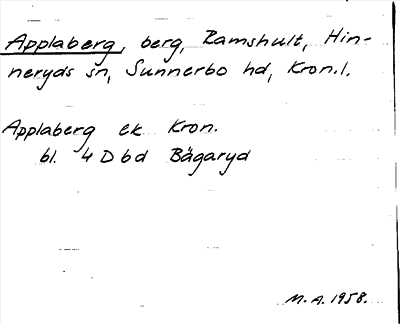 Applaberg, berg, Ramshult, Hin-
neryds sn, Sunnerbo hd, Kron.l.
Applaberg ek Kron.
bl. 4 D b d Bägaryd
M.A. 1958.